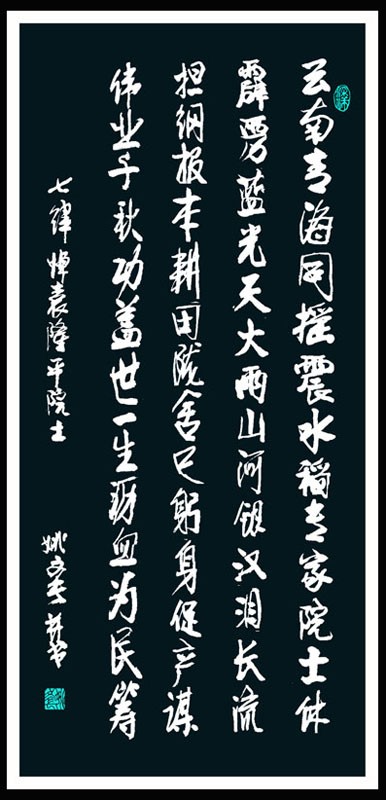 云南青海同摇震水稻专家院士休
霹雳蓝光天大雨山河银汉泪长流
担纲报本耕田陇舍己躬身促产谋
伟业千秋功盖世一生沥血为民筹
七律悼袁隆平院士
姚